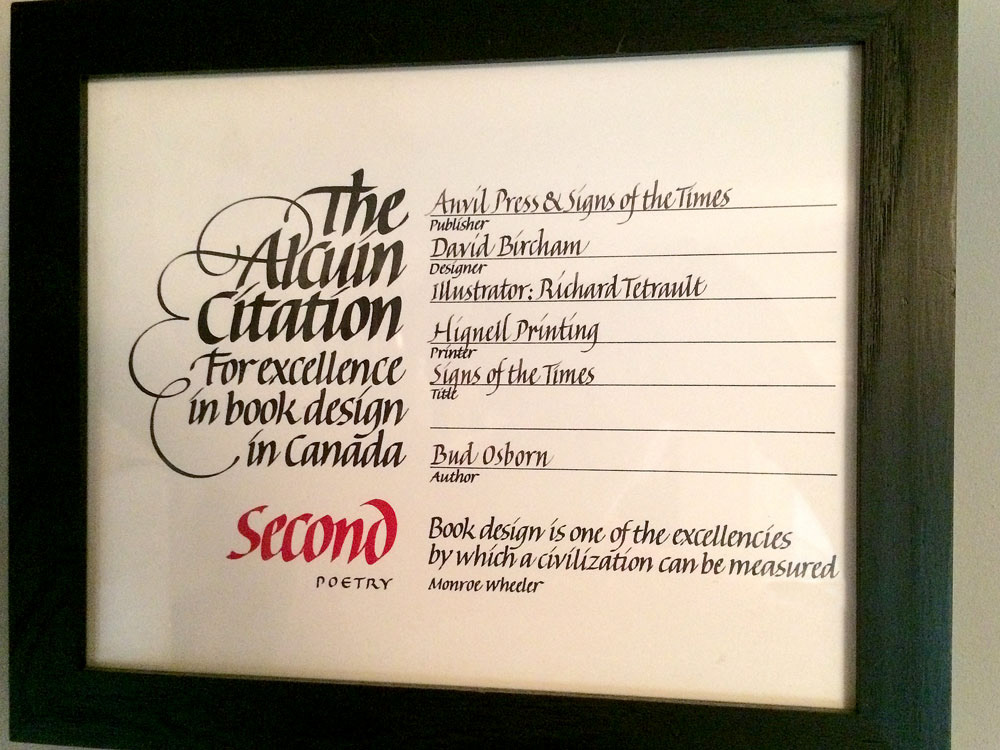 The
Alcuin
Citation
For excellence
in book design
in Canada
Second
POETRY
Anvil Press & Signs of the Times
Publisher
David Bircham
Designer
Illustrator: Richard Tetrault
Hignell Printing
Printer
Signs of the Times
Title
Bud Osborn
Author
Book design is one of the excellencies
by which a civilization can be measured
Monroe Wheeler